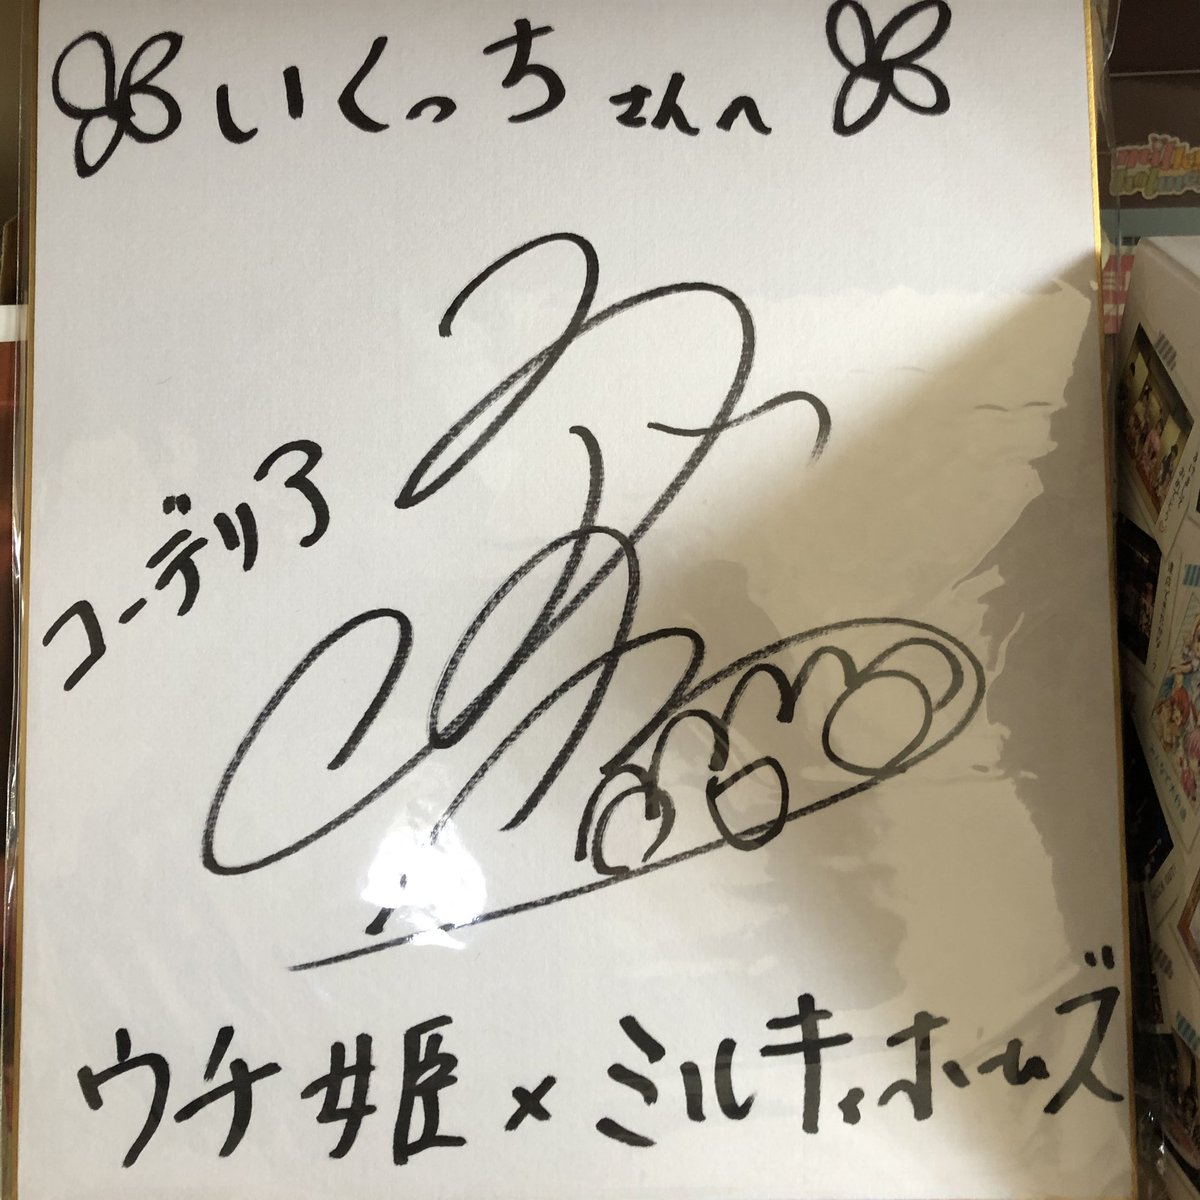 いくっちさんへ
コーデリア
ウチ姫×ミルキィホームズ